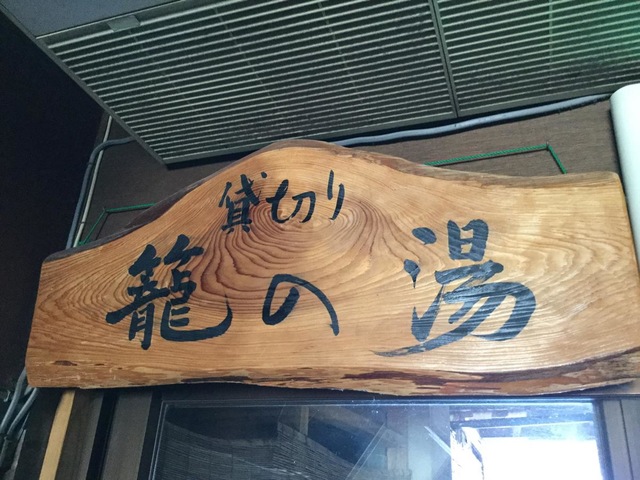 貸切り
籠の湯